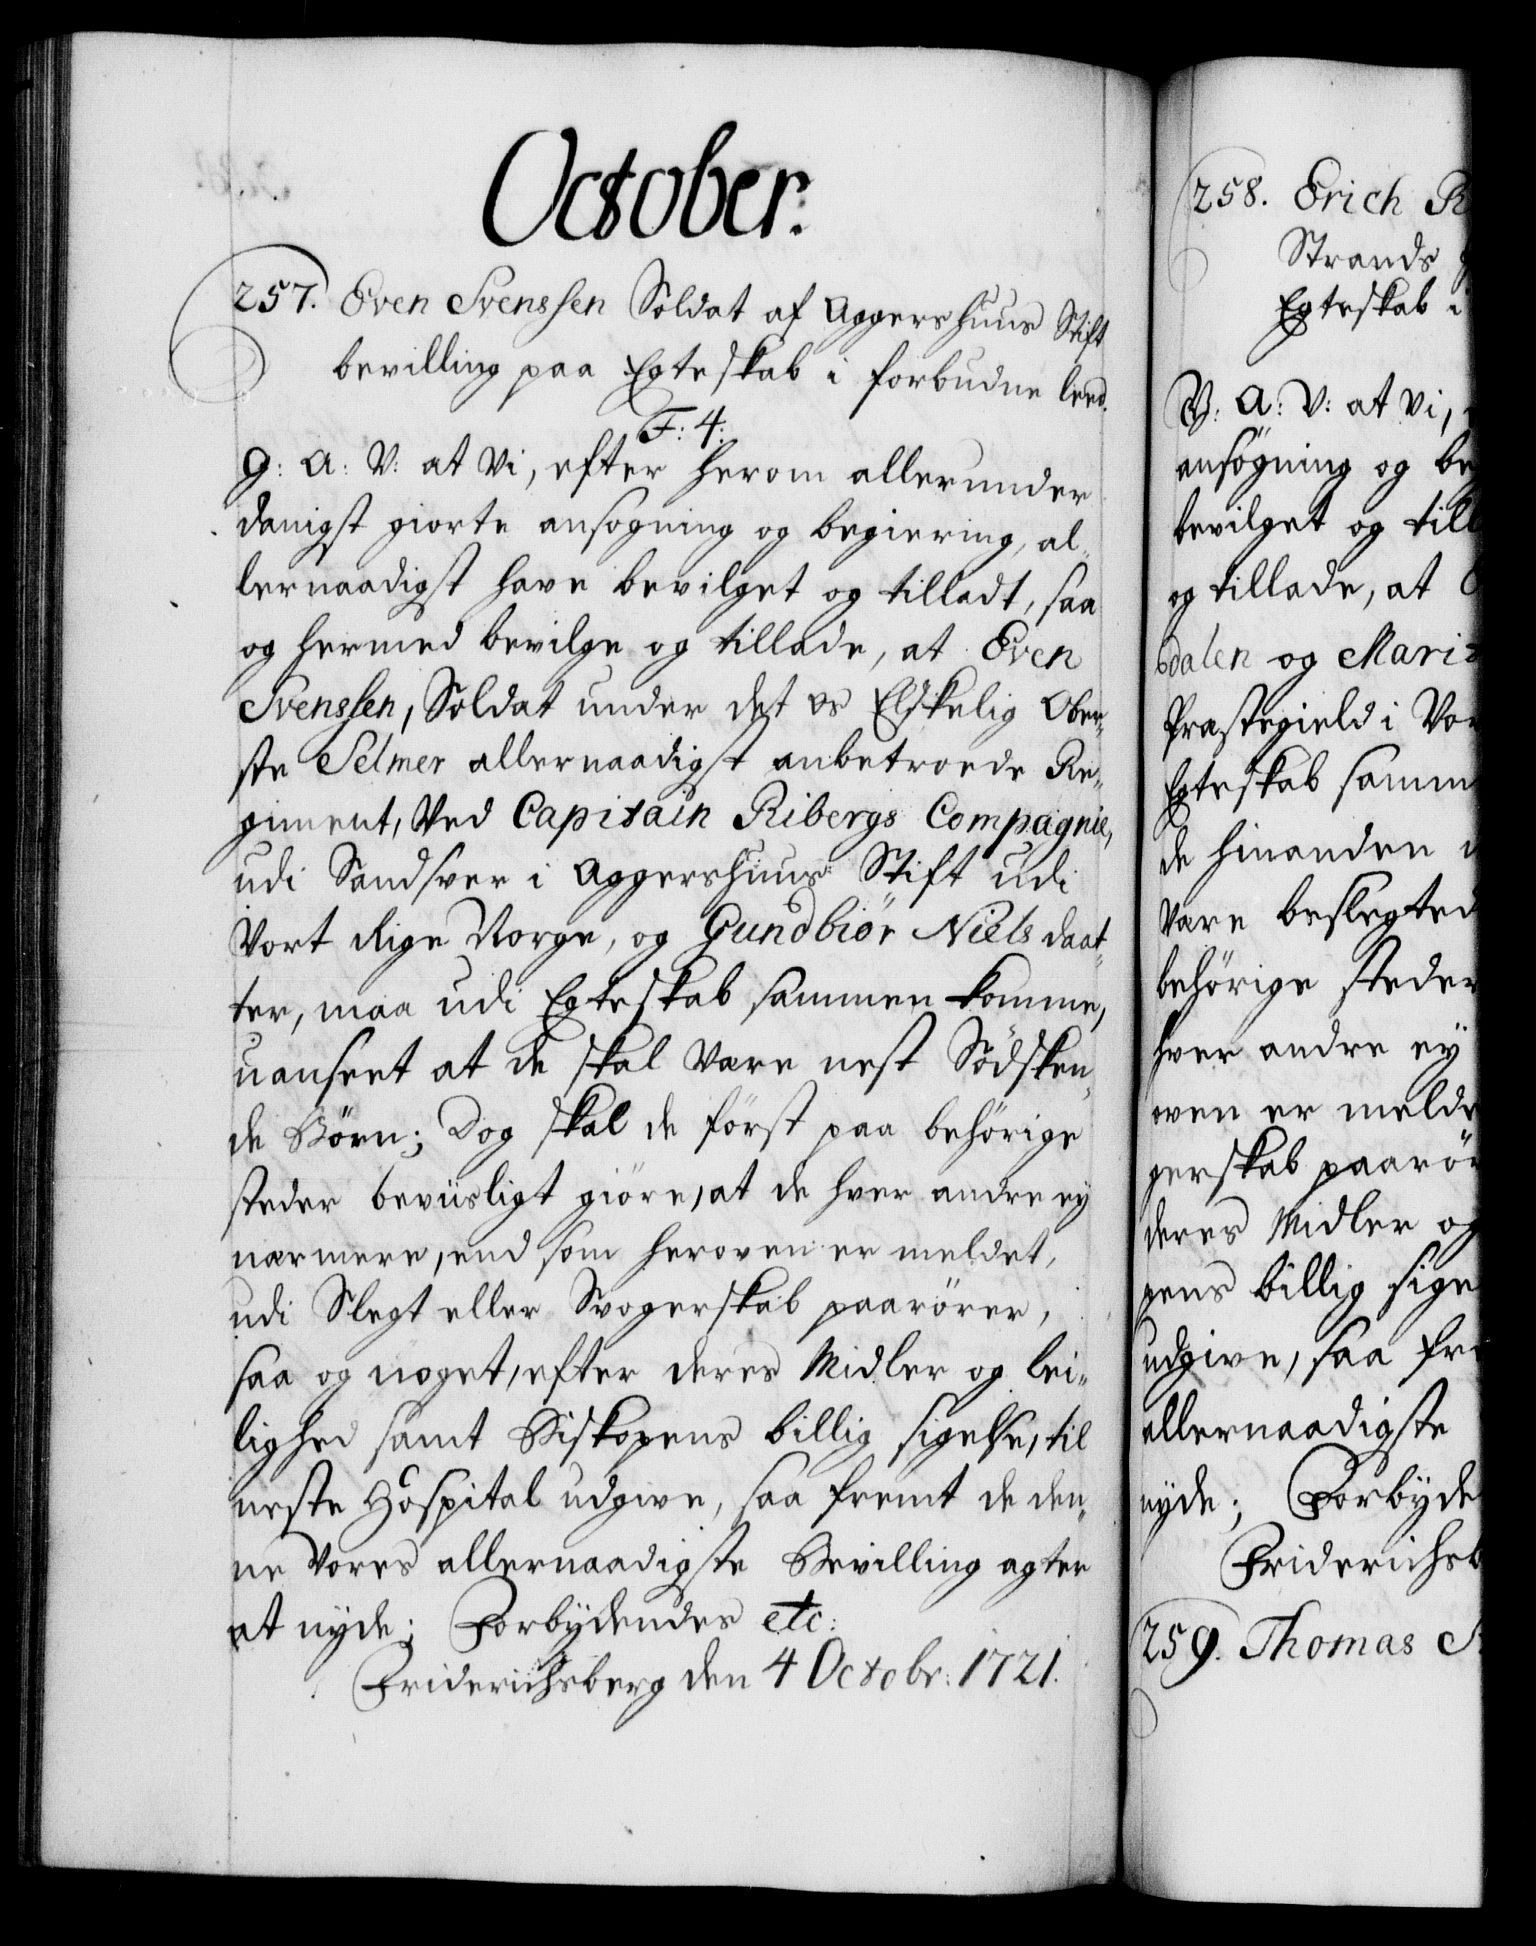 October.
257. Even Svenssen Soldat af Aggershuus Stift
bevilling paa Egteskab i forbudne leed.
F: 4:
G: A: V: at Vi, efter herom allerunder
danigst giorte ansøgning og begiering, al-
lernaadigst have bevilget og tilladt, saa
og hermed bevilge og tillade, at Even
Svenssen, Soldat under det os Elskelig Ober-
ste Selmer allernaadigst anbetroede Re-
giment, Ved Capitain Ribergs Compagnie,
udi Sandsver i Aggershuus Stift udi
Vort Rige Norge, og Gundbiör Niels daat-
ter, maa udi Egteskab sammen komme,
uanseet at de skal Være nest Södsken-
de Börn; Dog skal de först paa behörige
steder beviisligt giöre, at de hver andre ey
nærmere, end som heroven er meldet,
udi Slegt eller Svogerskab paarörer,
saa og noget, efter deres Midler og lei-
lighed samt Biskopens billig sigelse, til
neste Hospital udgive, saa fremt de den-
ne Vores allernaadigste Bevilling agter
at nyde; Forbydendes etc:
Friderichsberg den 4 Octobr: 1721.
258. Erich R
Strands
Egteskab i
V: A: V: at Vi,
ansögning og be
bevilget og till
og tillade, at
dalen og Marit
Præstegield i Vor
Egteskab samm
de hinanden
Være beslegted
behörige steder
hver andre ey
oven er melde
gerskab paarör
deres Midler og
pens billig sige
udgive, saa fre
allernaadigste
nyde; Forbyde
Friderichsb
259. Thomas S